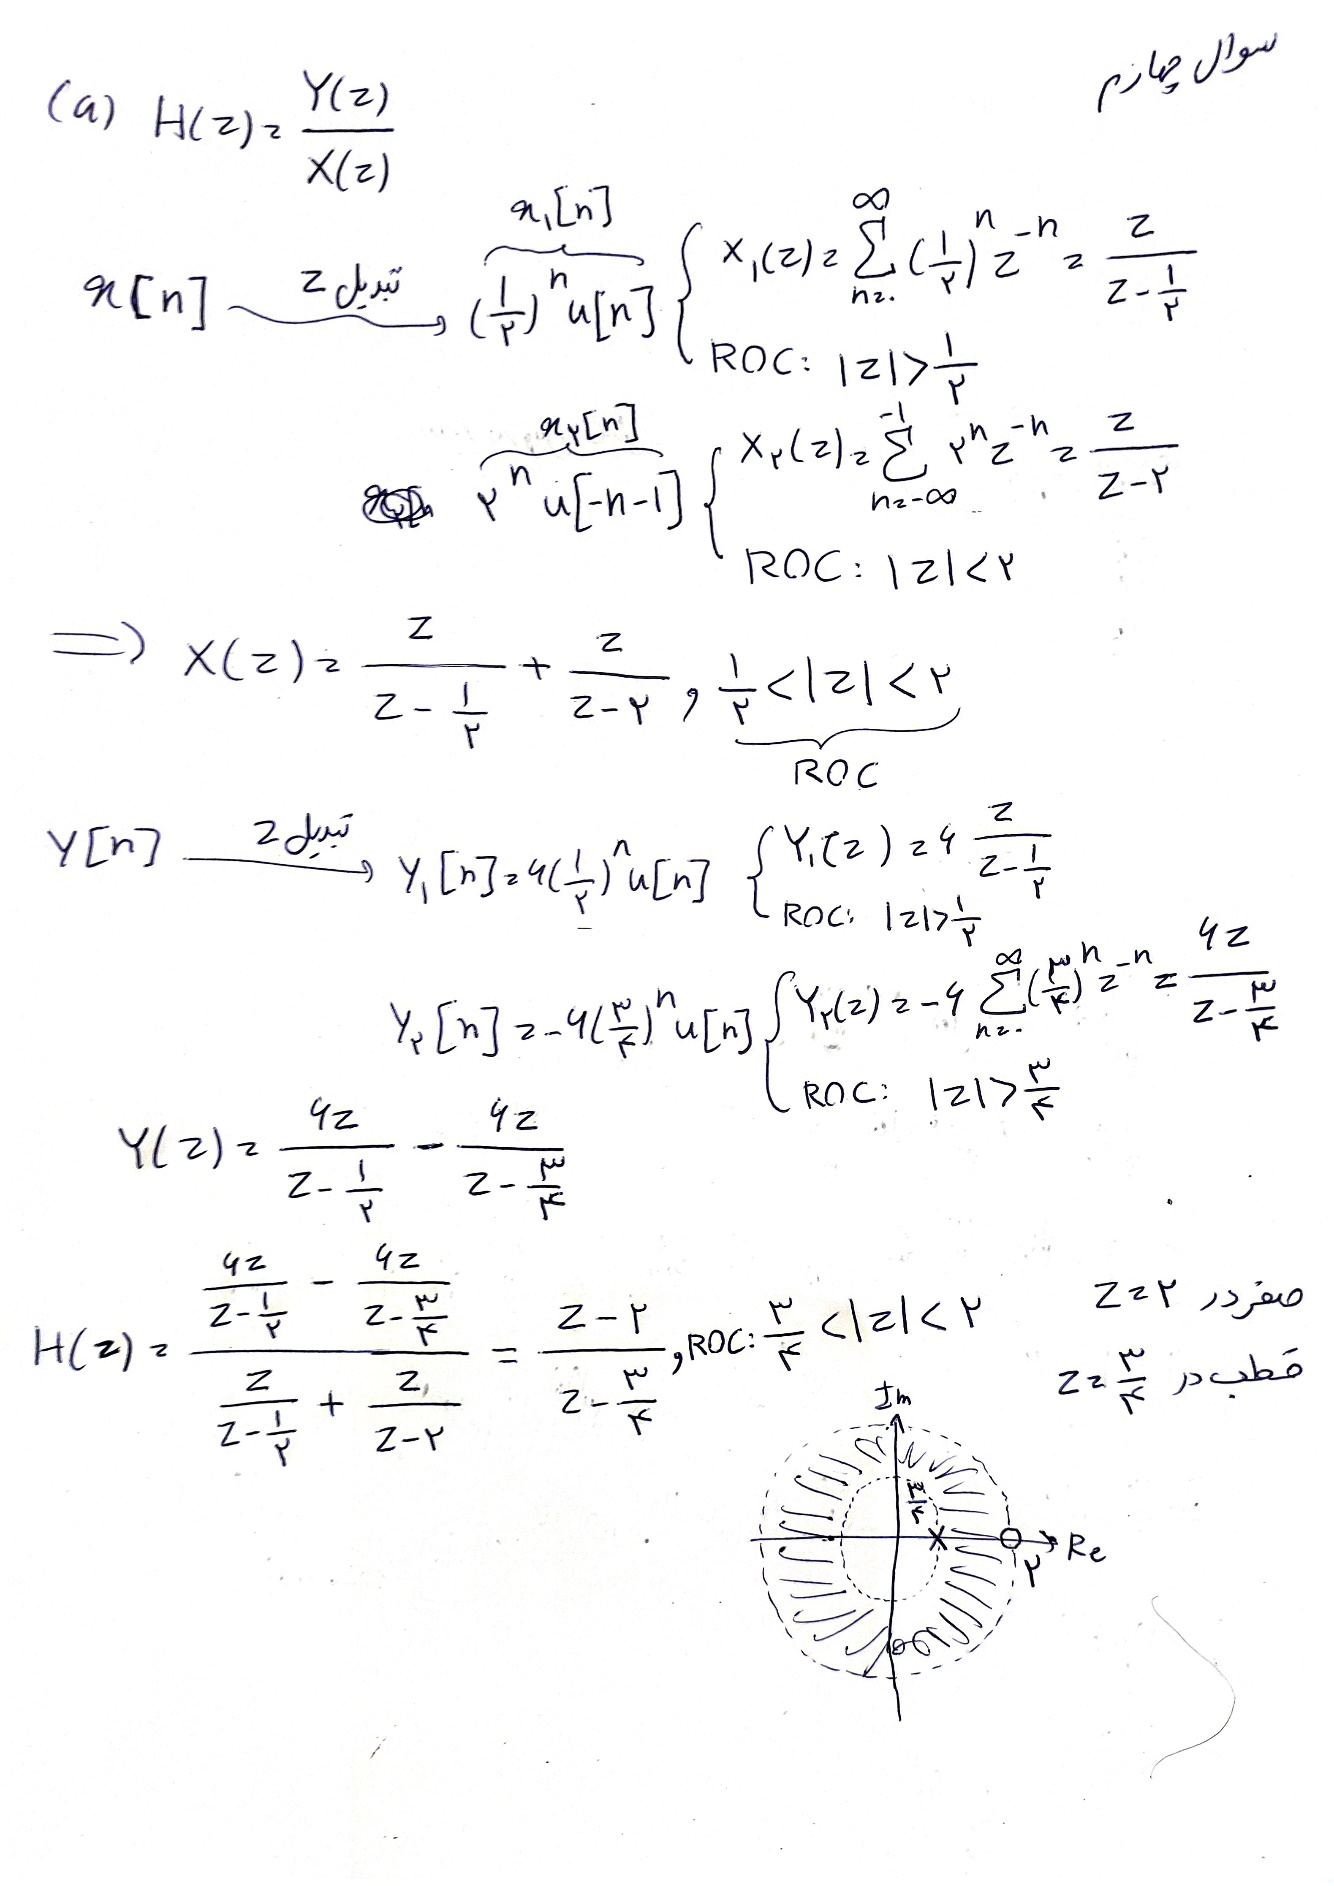 سوال چهارم
(a) H(z) = Y(z) / X(z)
x[n] تبدیل z → (۱/۲)^n u[n] x₁[n] { X₁(z) = Σ_{n=۰}^{∞} (۱/۲)^n z^{-n} = z / (z - ۱/۲)
ROC: |z| > ۱/۲
x۲[n] ۲^n u[-n-1] { X۲(z) = Σ_{n=-∞}^{-1} ۲^n z^{-n} = z / (z-۲)
ROC: |z| < ۲
⇒ X(z) = z / (z - ۱/۲) + z / (z-۲) , ۱/۲ < |z| < ۲
ROC
Y[n] تبدیل z → Y₁[n] = ۶(۱/۲)^n u[n] { Y₁(z) = ۶ z / (z - ۱/۲)
ROC: |z| > ۱/۲
Y۲[n] = -۶(۳/۴)^n u[n] { Y۲(z) = -۶ Σ_{n=۰}^{∞} (۳/۴)^n z^{-n} = ۶z / (z - ۳/۴)
ROC: |z| > ۳/۴
Y(z) = ۶z / (z - ۱/۲) - ۶z / (z - ۳/۴)
H(z) = (۶z / (z - ۱/۲) - ۶z / (z - ۳/۴)) / (z / (z - ۱/۲) + z / (z-۲)) = (z-۲) / (z - ۳/۴) , ROC: ۳/۴ < |z| < ۲
صفر در z=۲
قطب در z=۳/۴
Im
۳/۴
Re
۲